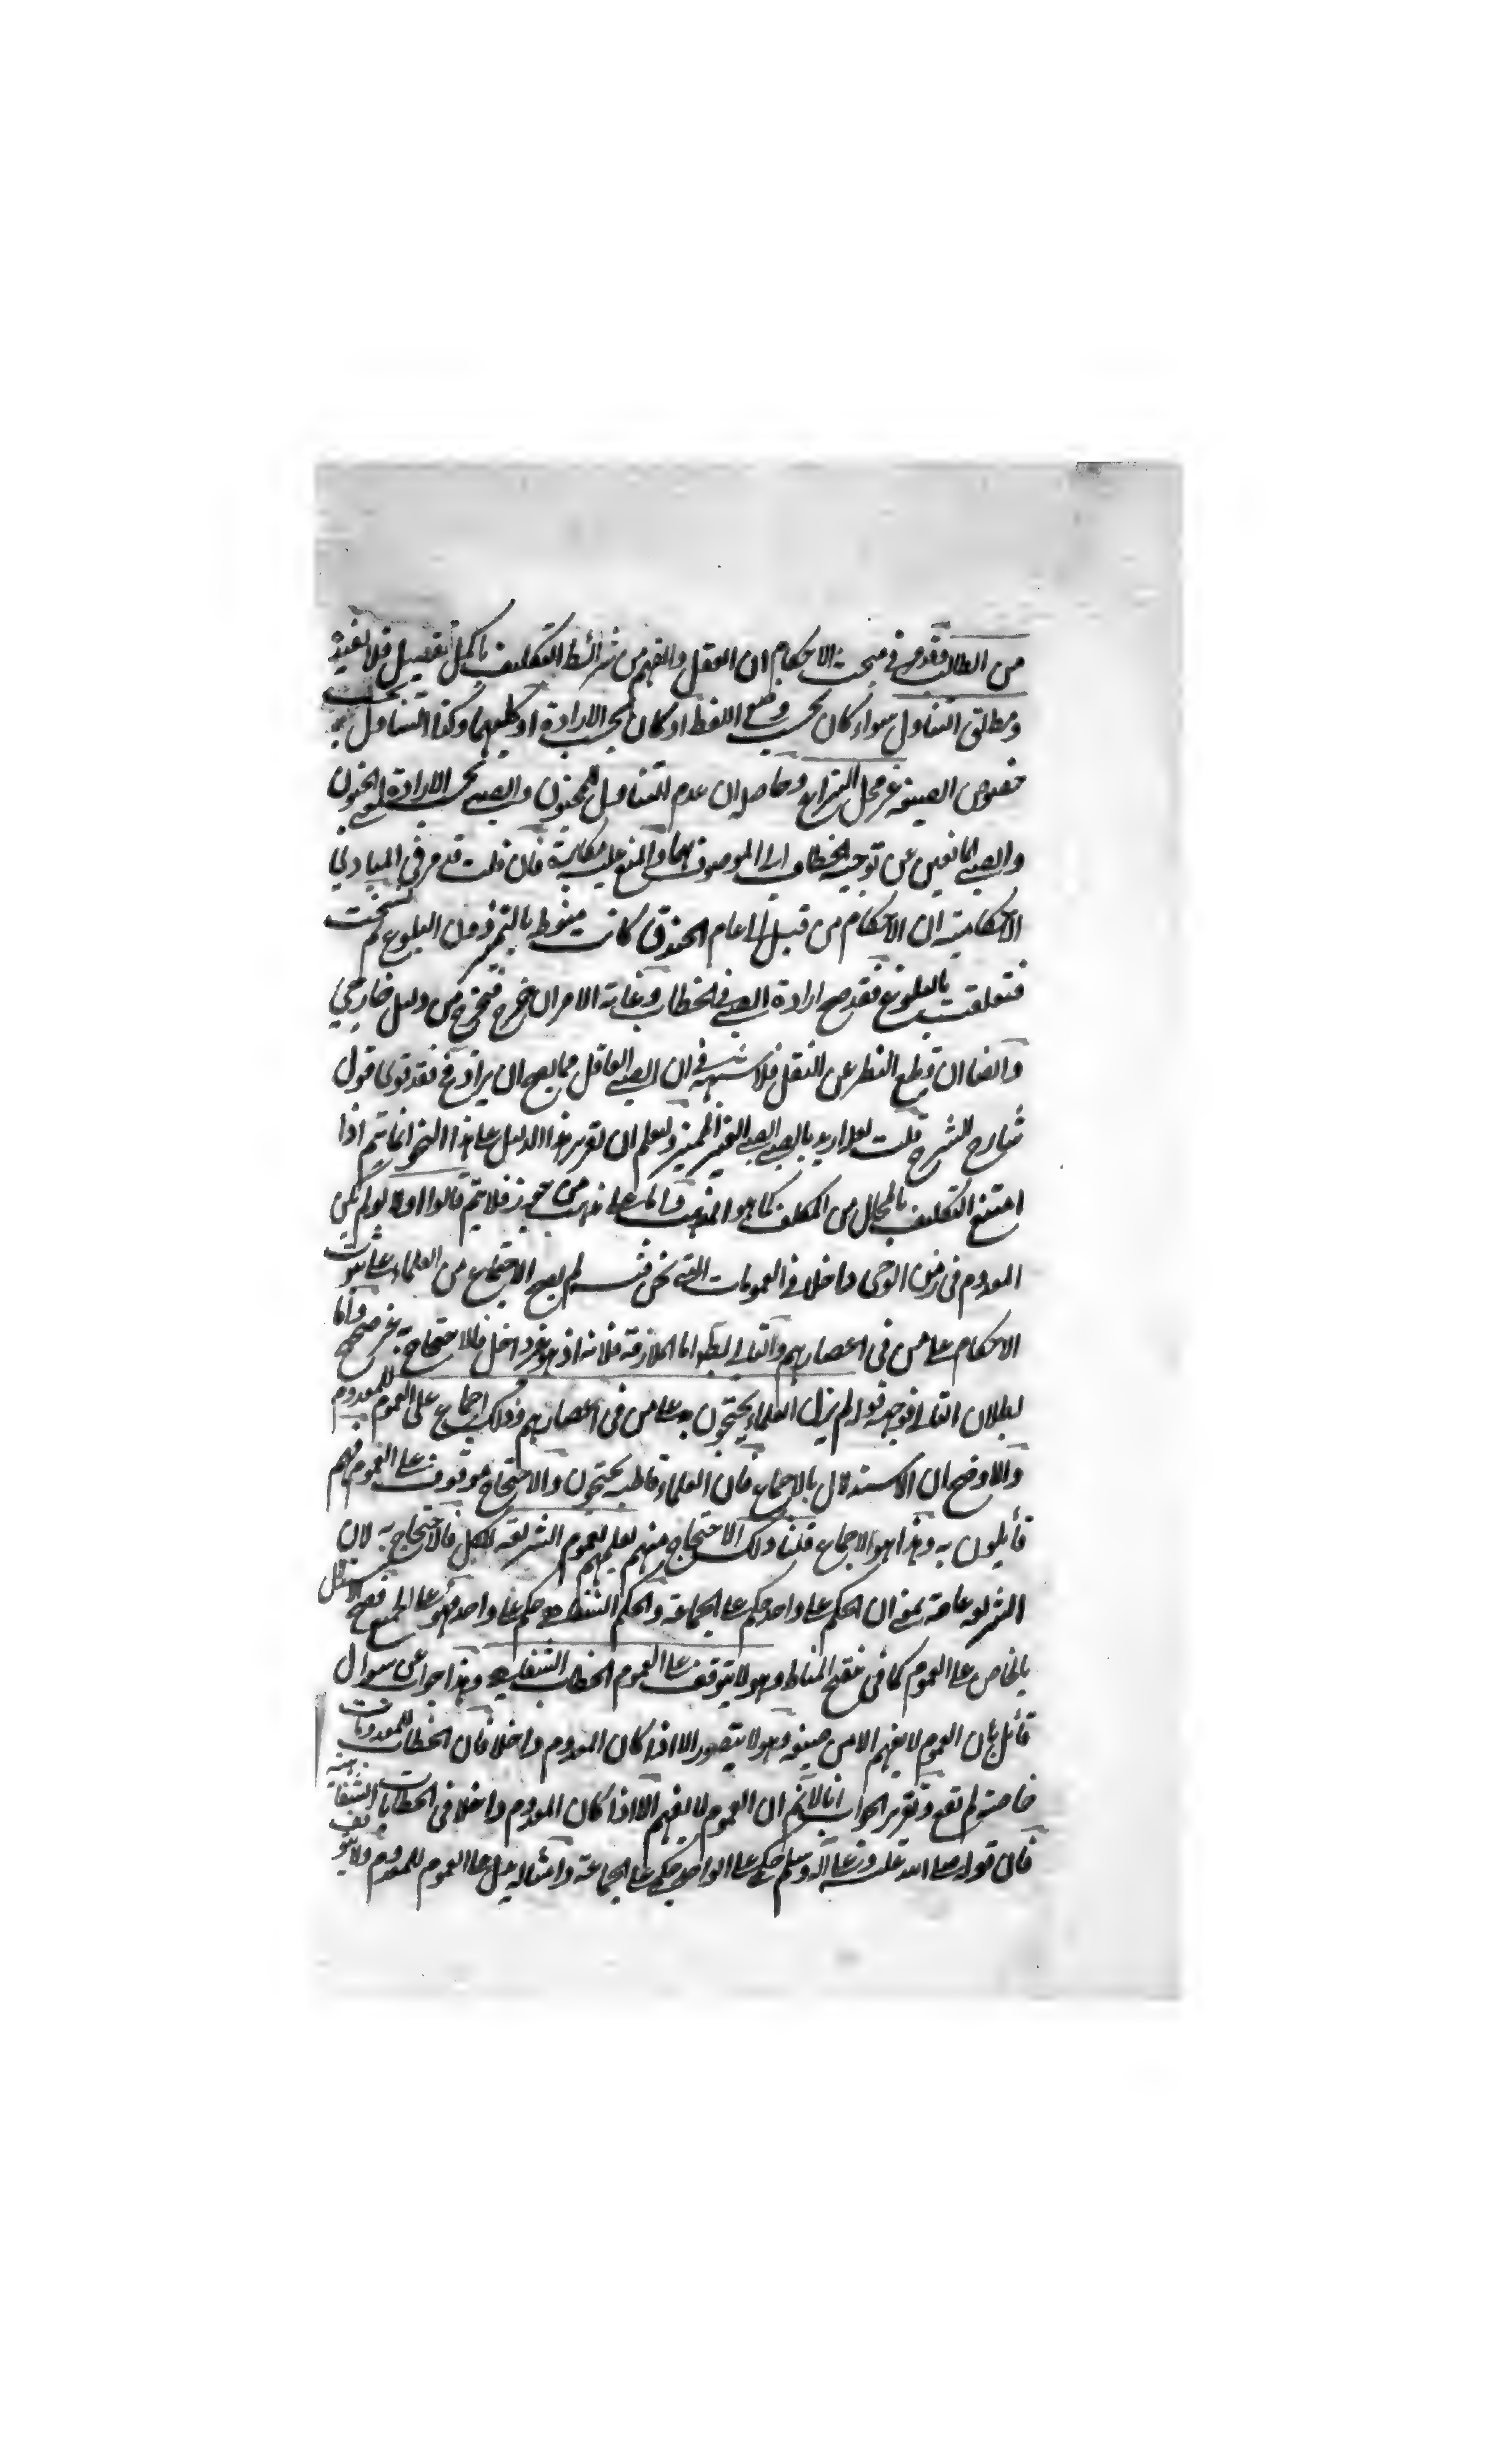 من الطالب وقد مر في مبحث الاحكام ان العقل والفهم من شرائط التكليف باكمل تفصيل فلا نعيده
ومطلق التناول سواء كان بحسب وضع اللفظ او كان بحسب الارادة او كليهما وكذا التناول بحسب
خصوص الصيغة غير محل النزاع وحاصله ان عدم التناول للمجنون والصبي بحسب الارادة لمعنى الجنون
والصبي المانعين عن توجيه الخطاب الى الموصوف بهما والمنع عليه مكابرة فان قلت قد مر في المبادئ
الاحكامية ان الاحكام من قبل الى عام الخندق كانت منوطة بالتميز دون البلوغ ثم نسخت
فتعلقت بالبلوغ فقد صح ارادة الصبي في الخطاب وغاية الامر ان خرج فتخرج من دليل خارجي
وايضا ان قطع النظر عن النقل فلا شبهة في ان الصبي العاقل مما يصح ان يراد فح فقد قوى قول
شارح الشرح قلت لعله اريد بالصبي الصبي الغير المميز وليعلم ان تقرير هذا الدليل على هذا النحو انما يتم اذا
امتنع التكليف بالمحال من المكلف كما هو المذهب واما على مذهب من جوز فلا يتم قالوا اولا لو لم يكن
المعدوم في زمن الوحي داخلا في العمومات التي نحن فيه لم يصح الاحتجاج من العلماء على ثبوت
الاحكام على من في اعصارهم والتالي بطا اما الملازمة فلانه اذ هو غير داخل فالاحتجاج به غير صحيح واما
بطلان التالي فوجهه قوله لم يزل العلماء يحتجون به على من في اعصارهم وذلك اجماع على العموم للمعدوم
والاوضح ان الاستدلال بالاجماع فان العلماء قاطبة يحتجون والاحتجاج موقوف على العموم فهم
قائلون به وهذا هو الاجماع قلنا ذلك الاحتجاج منهم لعلمهم بعموم الشريعة للكل فالاحتجاج به لان
الشريعة عامة بمعنى ان الحكم على واحد حكم على الجماعة والحكم الشفاهي حكم على واحد فهو على الجميع فصح الاستدلال
بالخاص على العموم كما في تنقيح المناط وهو لا يتوقف على العموم الخطاب الشفاهي وهذا جواب عن سوال
قائل بان العموم لا يفهم الا من صيغه وهو لا يتصور الا اذا كان المعدوم داخلا فان الخطاب للمعدومات
خاصة لم تقع وتقرير الجواب انا لا نم ان العموم لا يفهم الا اذا كان المعدوم داخلا في الخطابات الشفاهية
فان قوله صلى الله عليه وعلى آله وسلم حكمي على الواحد حكمي على الجماعة وامثاله يدل على العموم للمعدوم ولا يتوقف